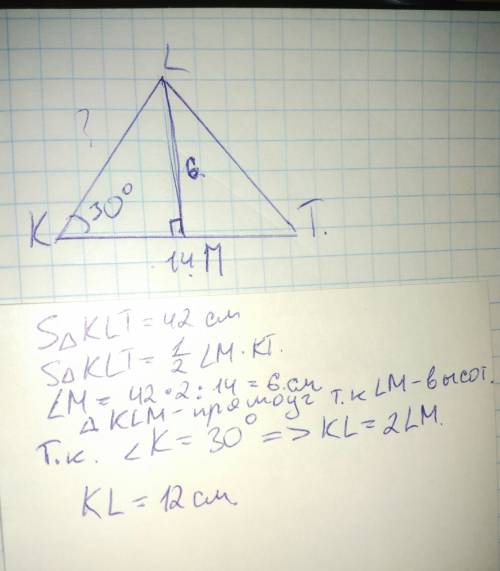 L
?
6.
K
30°
T.
14
M
S△KLT = 42 см
S△KLT = 1/2 LM · KT.
LM = 42 · 2 : 14 = 6 см
△ KLM - прямоуг т.к LM - высот.
Т.к. ∠K = 30° => KL = 2LM.
KL = 12 см